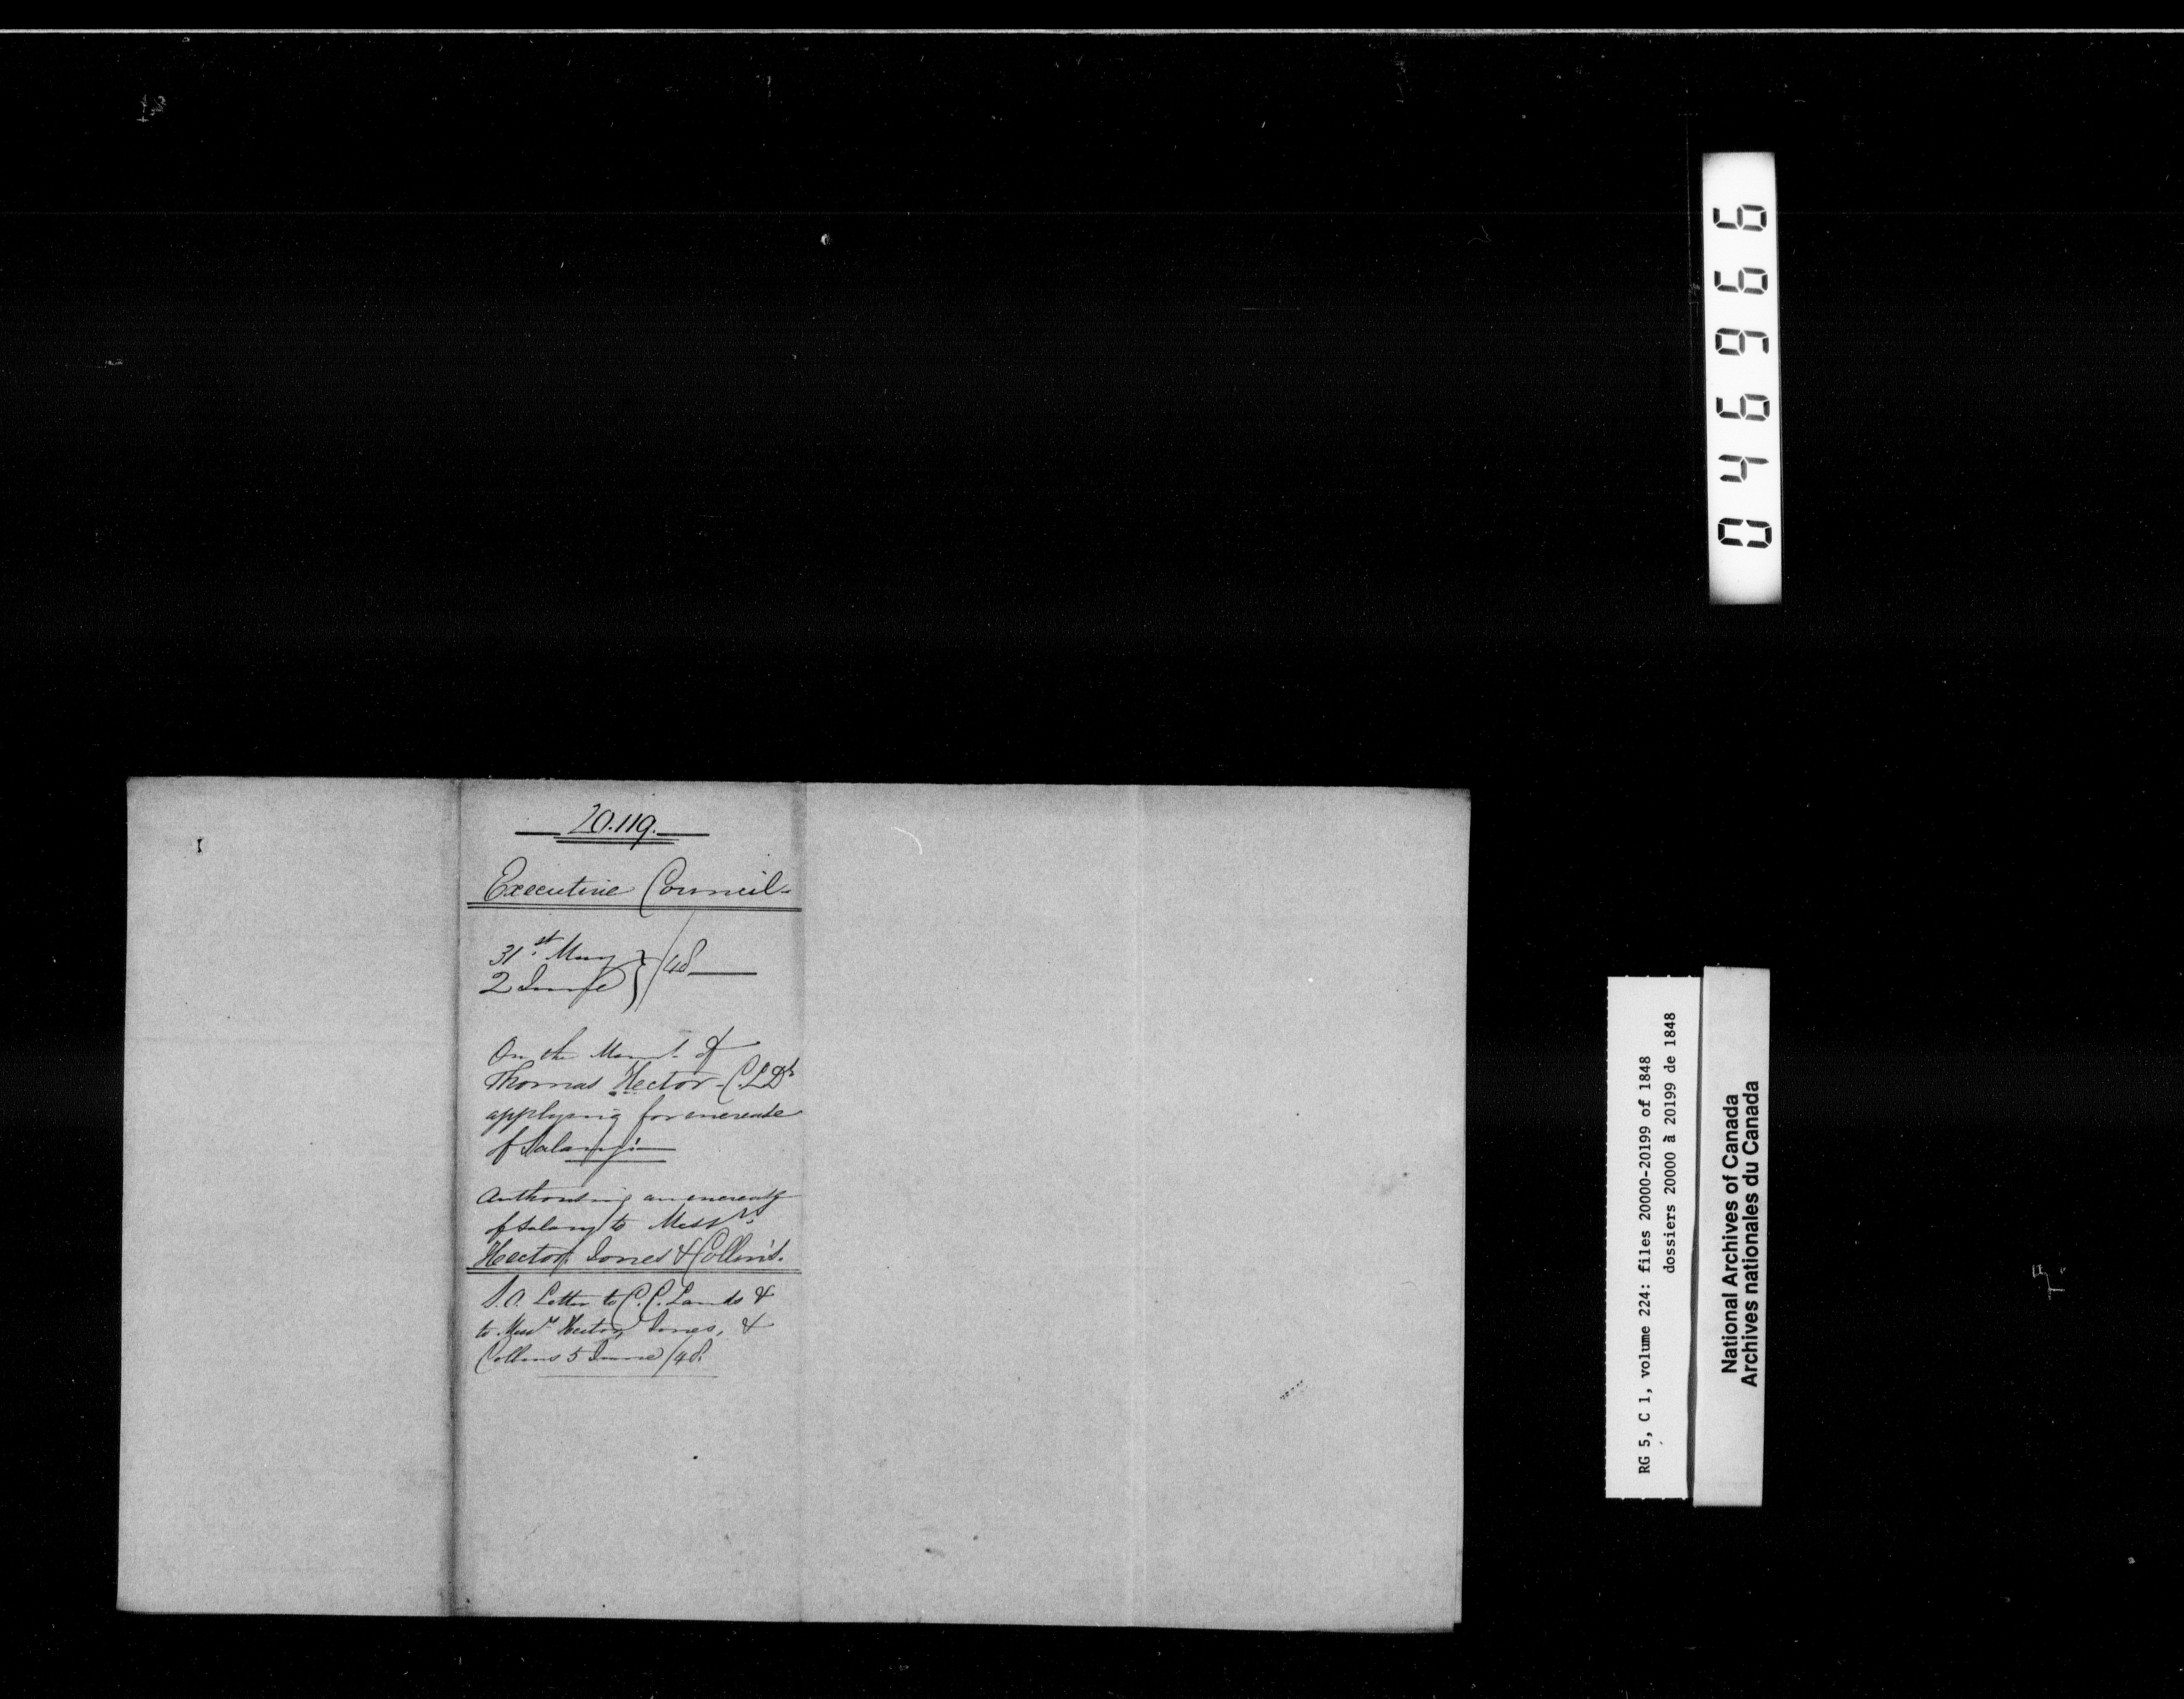 20.119.
Executive Council
31st May } /48
2 June }
On the Meml. of
Thomas Hector C.L.Dt
applying for encrease
of Salary
Authorising an encrease
of Salary to Messrs
Hector, Jones & Collins.
S.O. Letter to C.C. Lands &
to Messrs Hector, Jones, &
Collins 5 June /48.
046966
RG 5, C 1, volume 224: files 20000-20199 of 1848
dossiers 20000 à 20199 de 1848
National Archives of Canada
Archives nationales du Canada